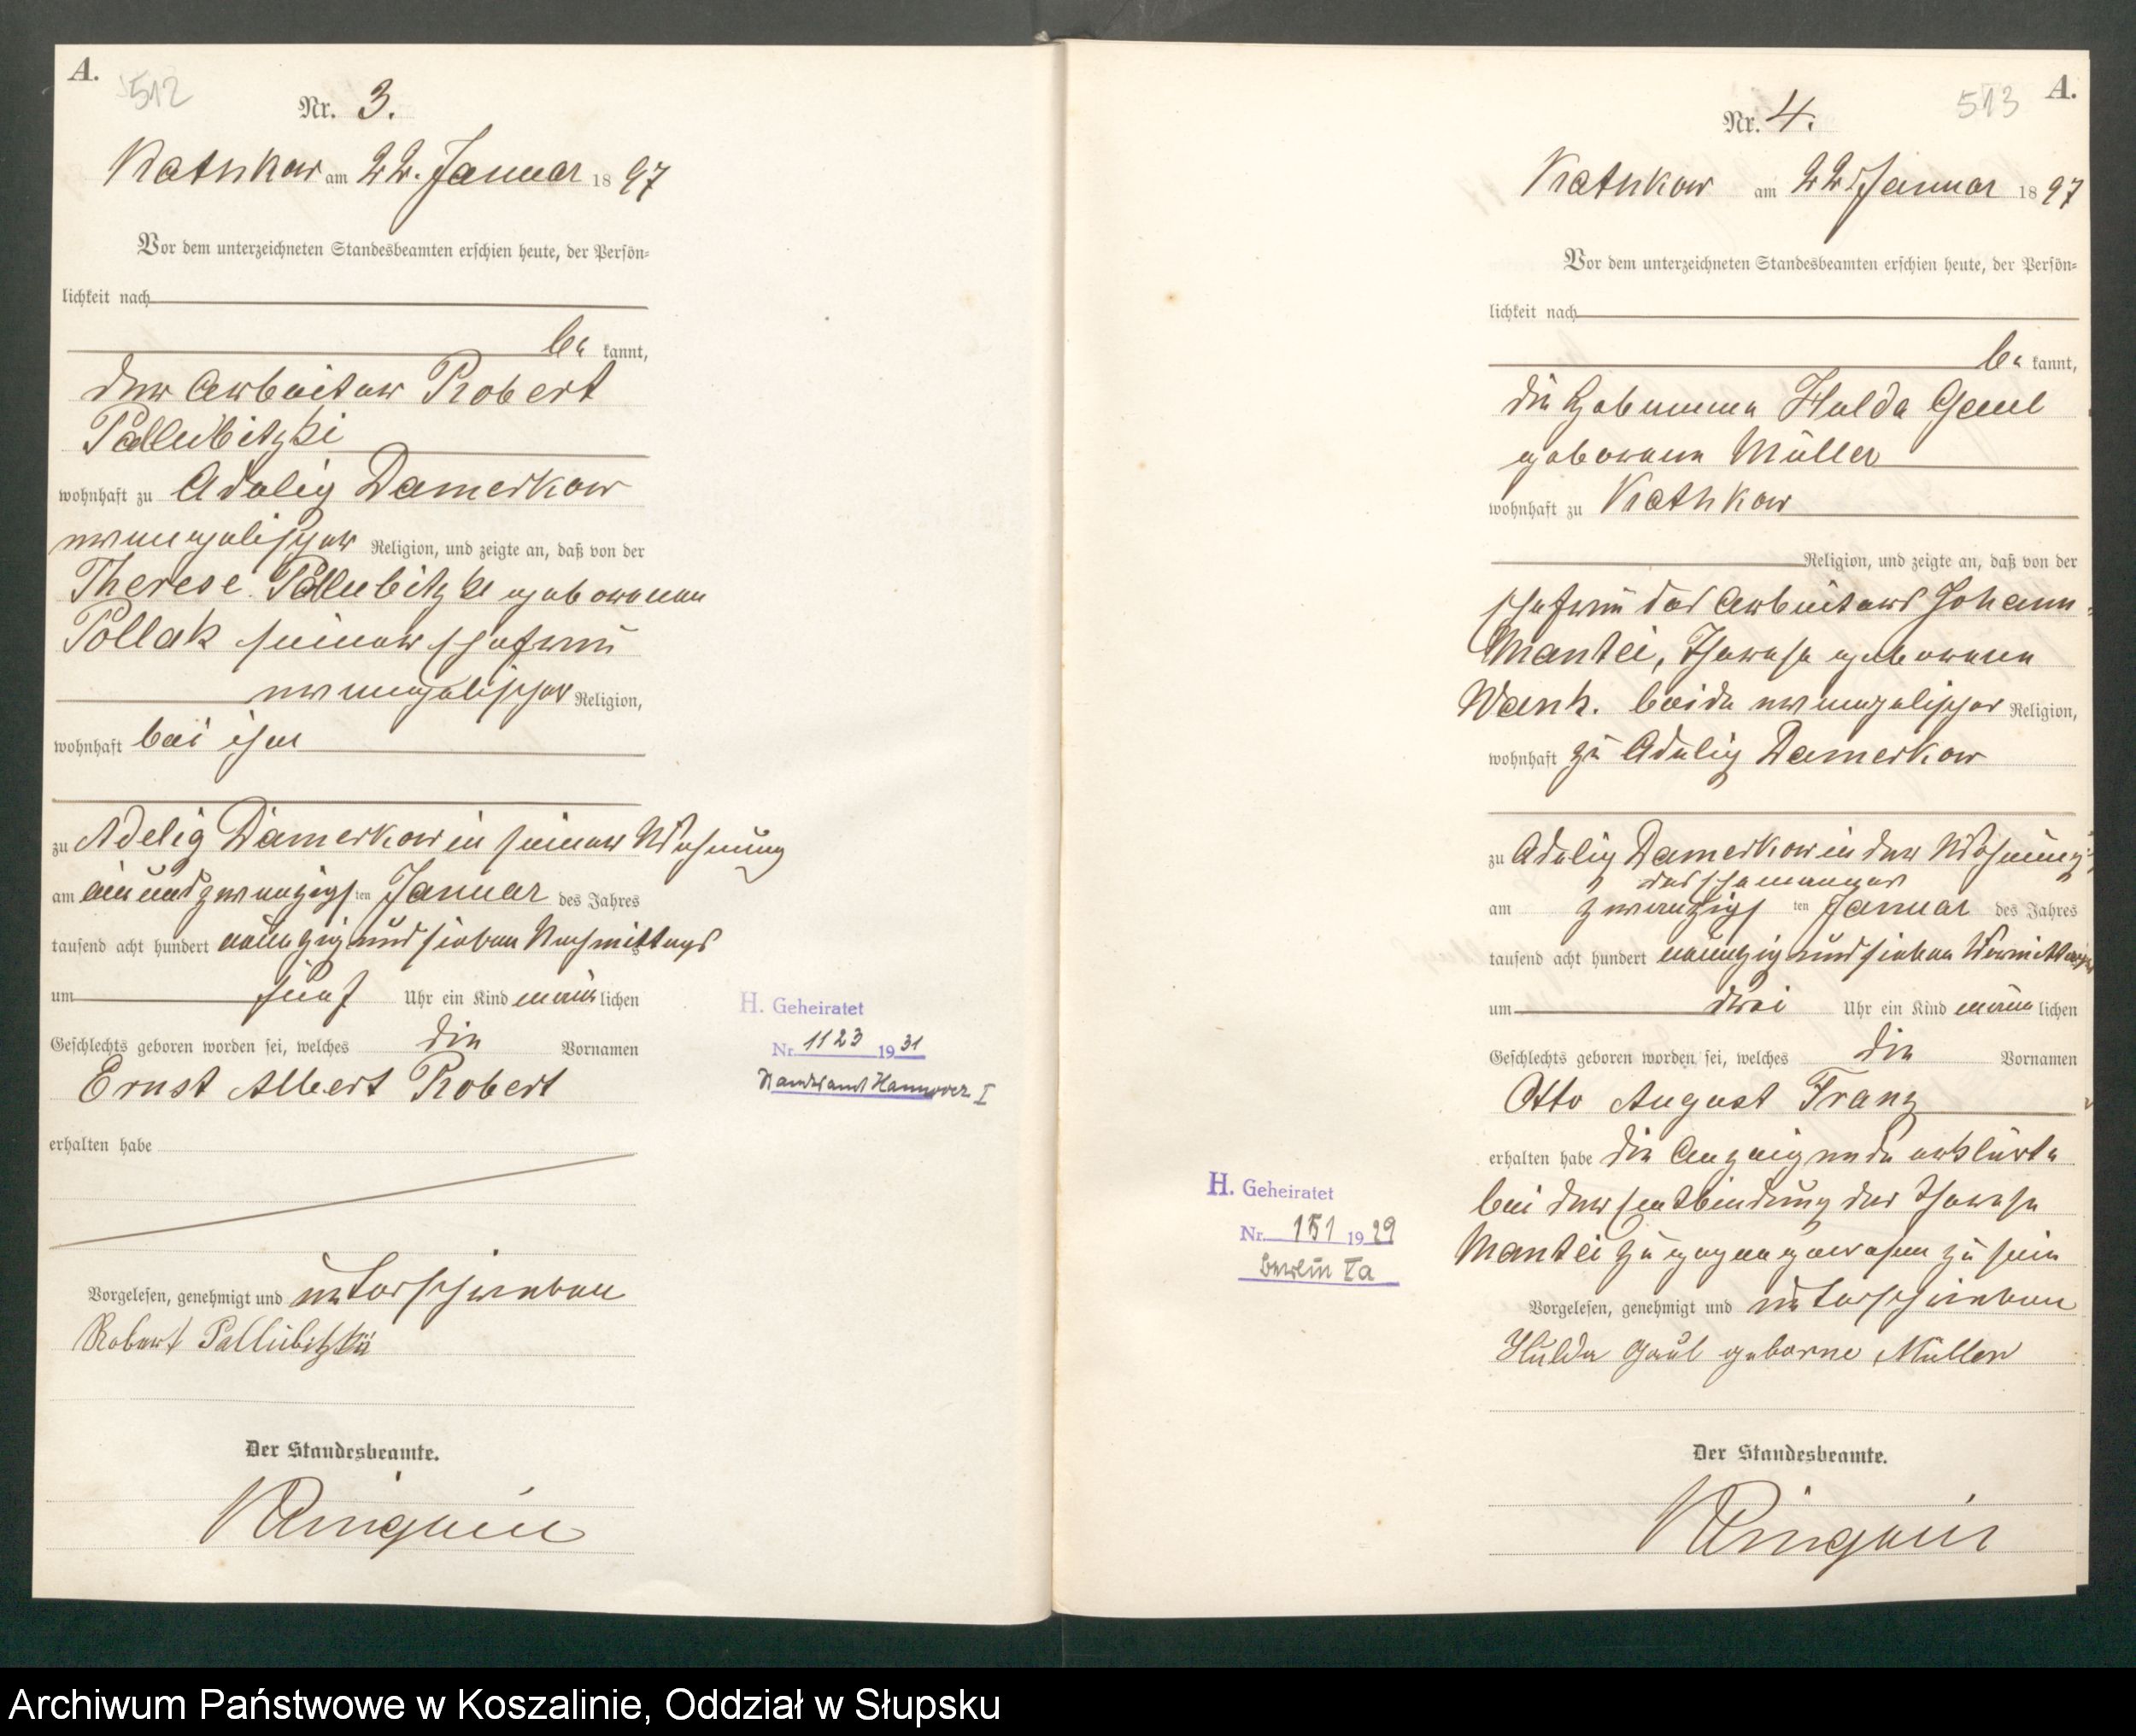 A.
512
Nr. 3.
Rathkow am 22. Januar 1897
Vor dem unterzeichneten Standesbeamten erschien heute, der Persön-
lichkeit nach
be kannt,
der Arbeiter Robert
Pallubitzki
wohnhaft zu Adelig Damerkow
evangelischer Religion, und zeigte an, daß von der
Therese Pallubitzki geborenen
Pollak seiner Ehefrau
evangelischer Religion,
wohnhaft bei ihm
zu Adelig Damerkow in seiner Wohnung
am einundzwanzigsten Januar des Jahres
tausend acht hundert neunzig und sieben Nachmittags
um fünf Uhr ein Kind männlichen
Geschlechts geboren worden sei, welches die Vornamen
Ernst Albert Robert
erhalten habe
Vorgelesen, genehmigt und unterschrieben
Robert Pallubitzki
Der Standesbeamte.
H. Geheiratet
Nr. 1123 1931
Standesamt Hannover I
A.
513
Nr. 4.
Rathkow am 22 Januar 1897
Vor dem unterzeichneten Standesbeamten erschien heute, der Persön-
lichkeit nach
be kannt,
die Hebamme Hulda Gaul
geborene Müller
wohnhaft zu Rathkow
Religion, und zeigte an, daß von der
Ehefrau des Arbeiters Johann
Mantei, Therese geborene
Wank. beide evangelischer Religion,
wohnhaft zu Adelig Damerkow
zu Adelig Damerkow in der Wohnung
der Ehemannes
am zwanzigsten Januar des Jahres
tausend acht hundert neunzig und sieben Vormittags
um drei Uhr ein Kind männlichen
Geschlechts geboren worden sei, welches die Vornamen
Otto August Franz
erhalten habe die Anzeigende erklärte
bei der Entbindung der Therese
Mantei zugegen gewesen zu sein
Vorgelesen, genehmigt und unterschrieben
Hulda Gaul geborne Müller
Der Standesbeamte.
H. Geheiratet
Nr. 151 1929
Berlin Va
Archiwum Państwowe w Koszalinie, Oddział w Słupsku